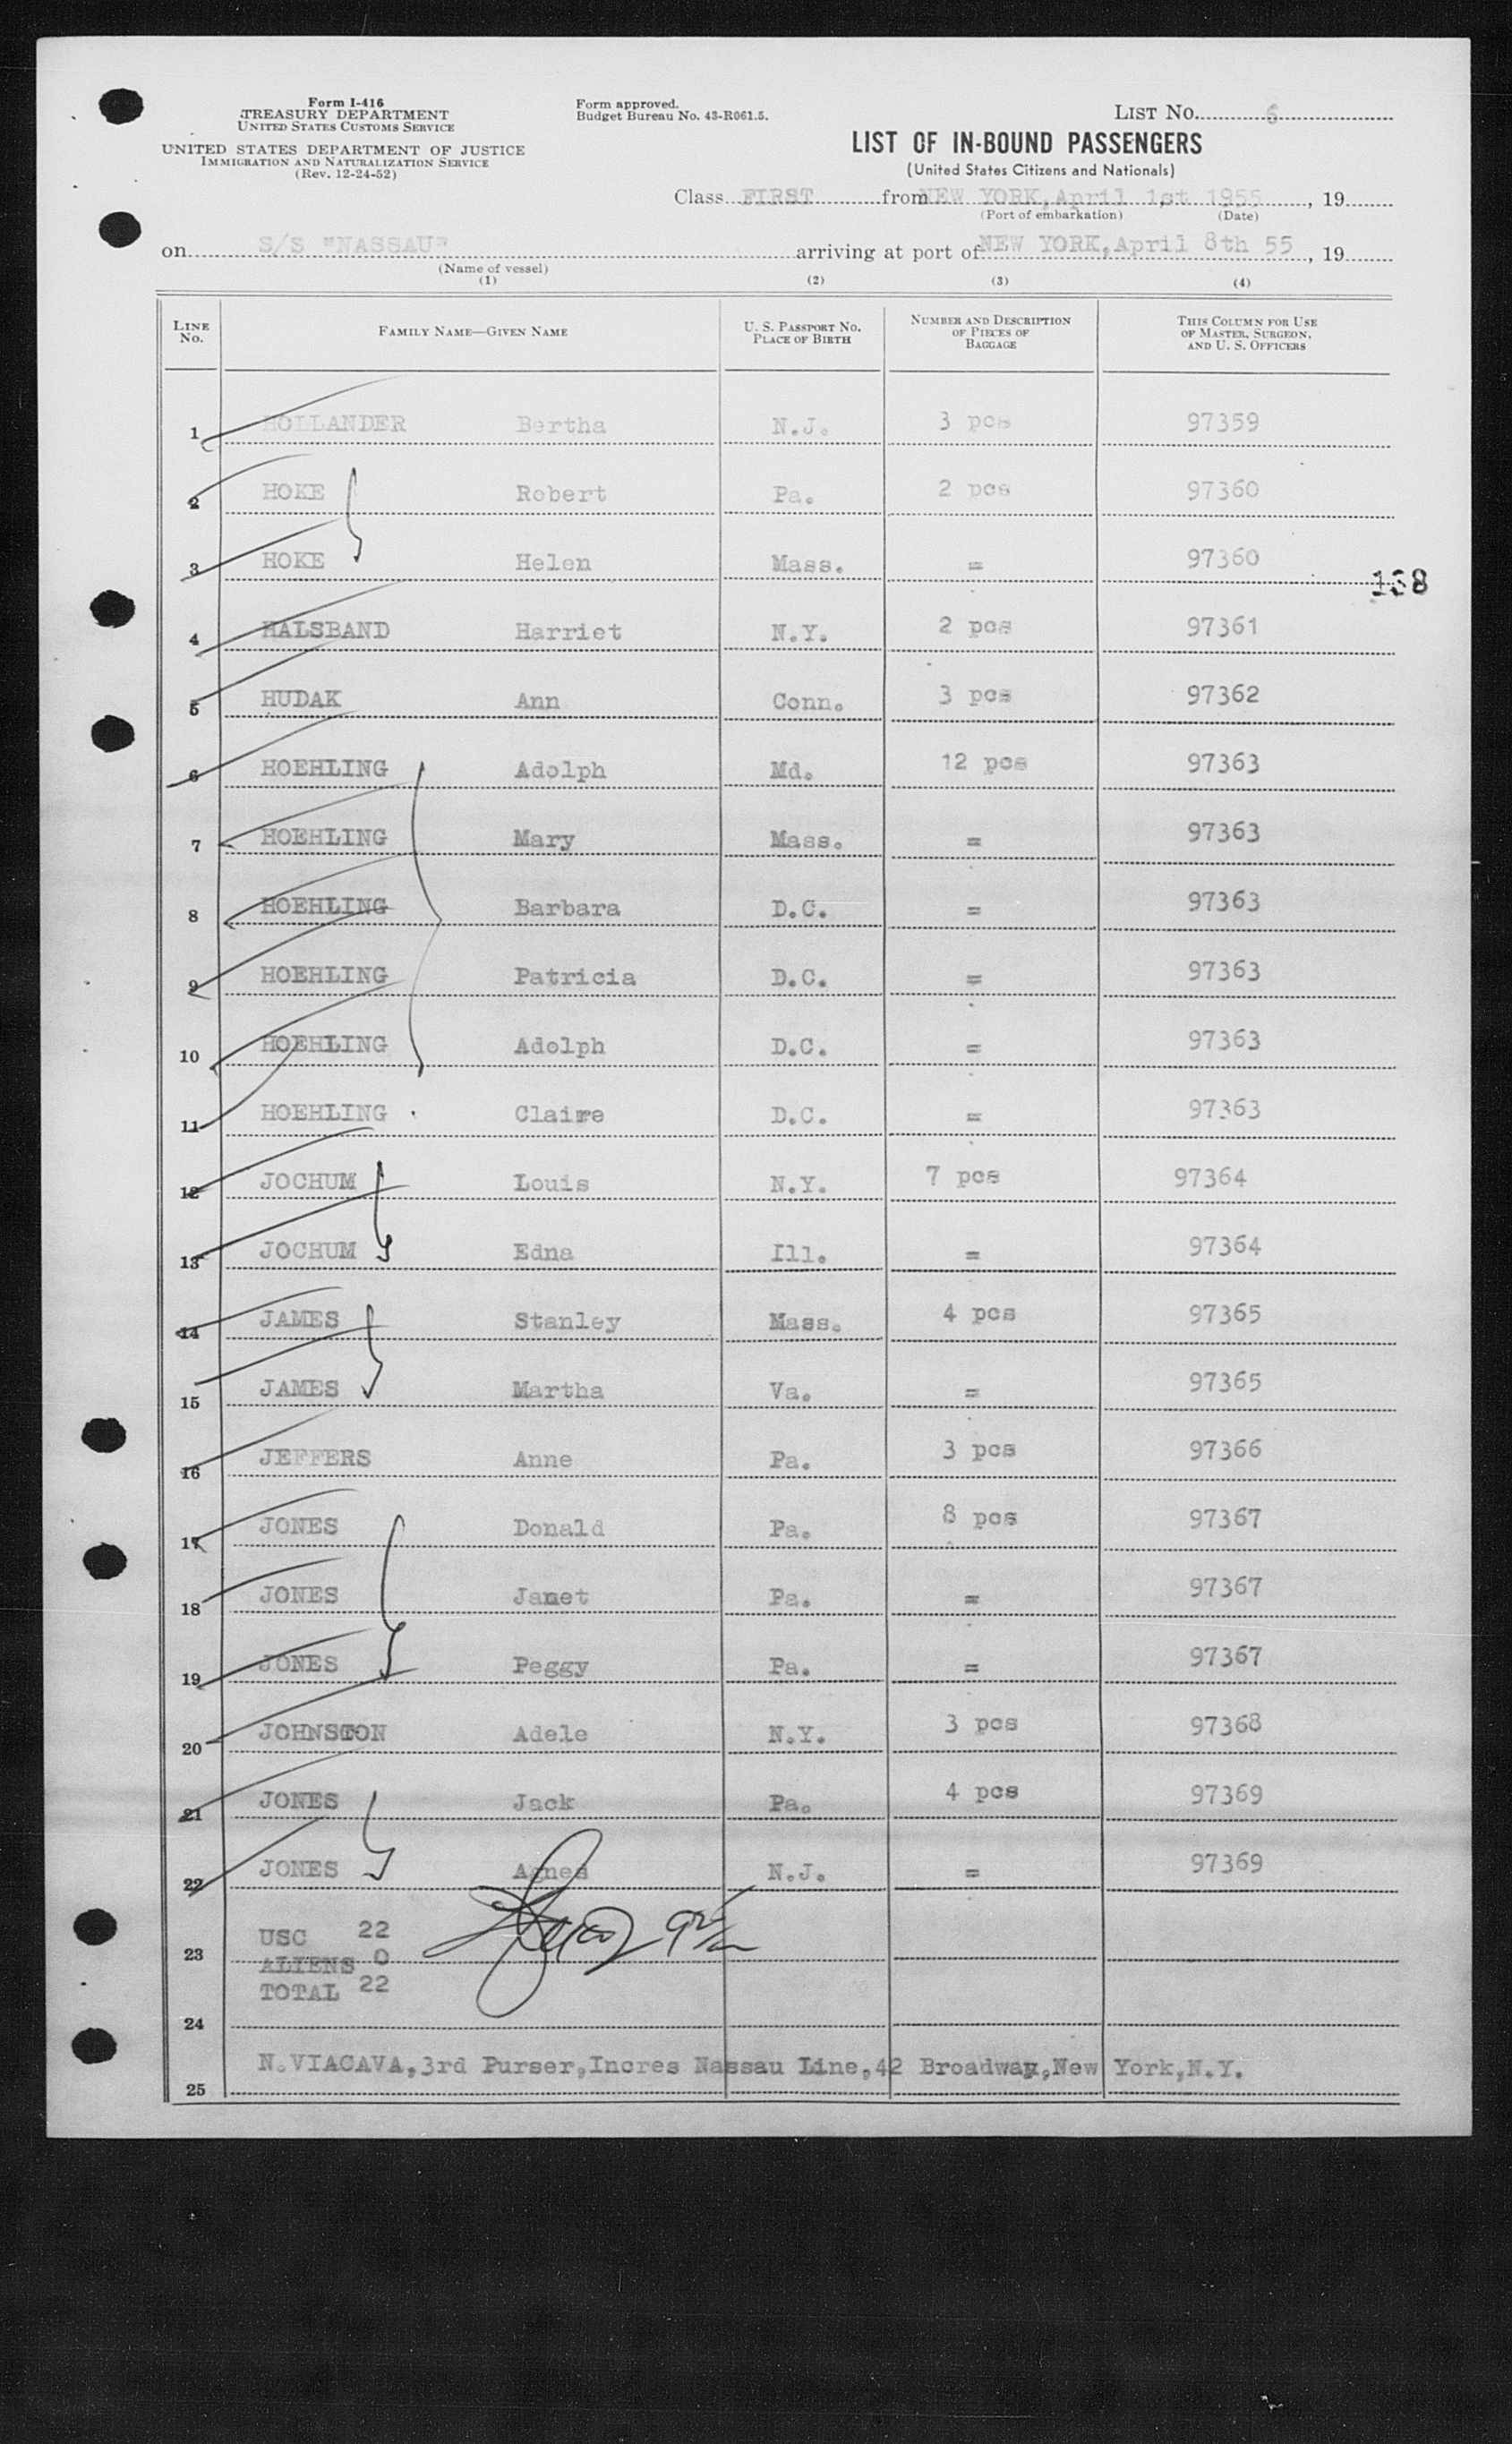 Form I-416
TREASURY DEPARTMENT
UNITED STATES CUSTOMS SERVICE
UNITED STATES DEPARTMENT OF JUSTICE
IMMIGRATION AND NATURALIZATION SERVICE
(Rev. 12-24-52)
Form approved.
Budget Bureau No. 43-R061.5.
LIST No. 6
LIST OF IN-BOUND PASSENGERS
(United States Citizens and Nationals)
Class FIRST from NEW YORK, April 1st 1955, 19
(Port of embarkation) (Date)
on S/S "NASSAU" arriving at port of NEW YORK, April 8th 55, 19
(Name of vessel)
(1) (2) (3) (4)
LINE No. FAMILY NAME—GIVEN NAME U. S. PASSPORT NO. PLACE OF BIRTH NUMBER AND DESCRIPTION OF PIECES OF BAGGAGE THIS COLUMN FOR USE OF MASTER, SURGEON, AND U. S. OFFICERS
1 HOLLANDER Bertha N.J. 3 pcs 97359
2 HOKE Robert Pa. 2 pcs 97360
3 HOKE Helen Mass. = 97360
138
4 HALSBAND Harriet N.Y. 2 pcs 97361
5 HUDAK Ann Conn. 3 pcs 97362
6 HOEHLING Adolph Md. 12 pcs 97363
7 HOEHLING Mary Mass. = 97363
8 HOEHLING Barbara D.C. = 97363
9 HOEHLING Patricia D.C. = 97363
10 HOEHLING Adolph D.C. = 97363
11 HOEHLING Claire D.C. = 97363
12 JOCHUM Louis N.Y. 7 pcs 97364
13 JOCHUM Edna Ill. = 97364
14 JAMES Stanley Mass. 4 pcs 97365
15 JAMES Martha Va. = 97365
16 JEFFERS Anne Pa. 3 pcs 97366
17 JONES Donald Pa. 8 pcs 97367
18 JONES Janet Pa. = 97367
19 JONES Peggy Pa. = 97367
20 JOHNSTON Adele N.Y. 3 pcs 97368
21 JONES Jack Pa. 4 pcs 97369
22 JONES Agnes N.J. = 97369
USC 22
23 ALIENS 0
TOTAL 22
24
25 N.VIACAVA,3rd Purser,Incres Nassau Line,42 Broadway,New York,N.Y.